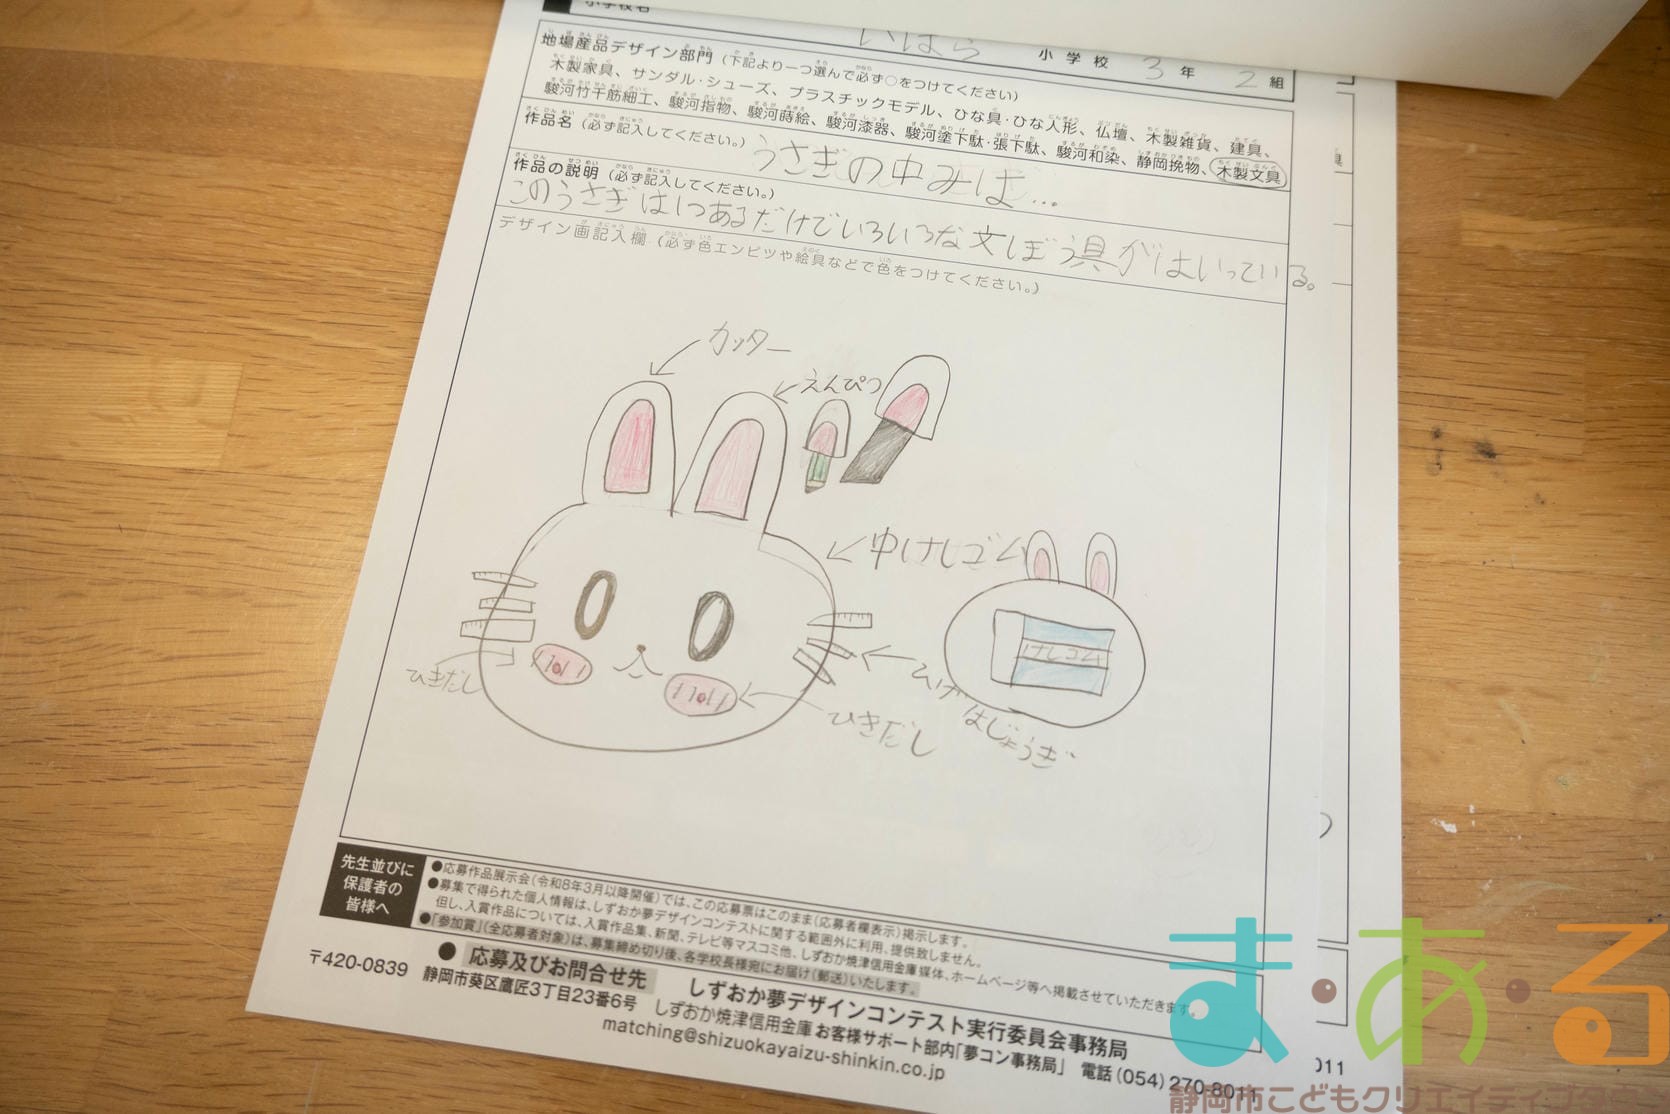 小学校名
いはら 小学校 3年 2組
地場産品デザイン部門(下記より一つ選んで必ず○をつけてください)
木製家具、サンダル・シューズ、プラスチックモデル、ひな具・ひな人形、仏壇、木製雑貨、建具、
駿河竹千筋細工、駿河指物、駿河蒔絵、駿河漆器、駿河塗下駄・張下駄、駿河和染、静岡挽物、木製文具
作品名(必ず記入してください。)
うさぎの中みは…
作品の説明(必ず記入してください。)
このうさぎは1つあるだけでいろいろな文ぼう具がはいっている。
デザイン画記入欄(必ず色エンピツや絵具などで色をつけてください。)
カッター
えんぴつ
中けしゴム
けしゴム
ひきだし
ひげはじょうぎ
ひきだし
先生並びに
保護者の
皆様へ
●応募作品展示会(令和8年3月以降開催)では、この応募票はこのまま(応募者欄表示)掲示します。
●募集で得られた個人情報は、しずおか夢デザインコンテストに関する範囲外に利用、提供致しません。
但し、入賞作品については、入賞作品集、新聞、テレビ等マスコミ他、しずおか焼津信用金庫媒体、ホームページ等へ掲載させていただきます。
●「参加賞」(全応募者対象)は、募集締め切り後、各学校長様宛にお届け(郵送)いたします。
●応募及びお問合せ先 しずおか夢デザインコンテスト実行委員会事務局
〒420-0839 静岡市葵区鷹匠3丁目23番6号 しずおか焼津信用金庫 お客様サポート部内「夢コン事務局」 電話(054)270-8011
matching@shizuokayaizu-shinkin.co.jp
011
ま・あ・る
静岡市こどもクリエイティブタウン